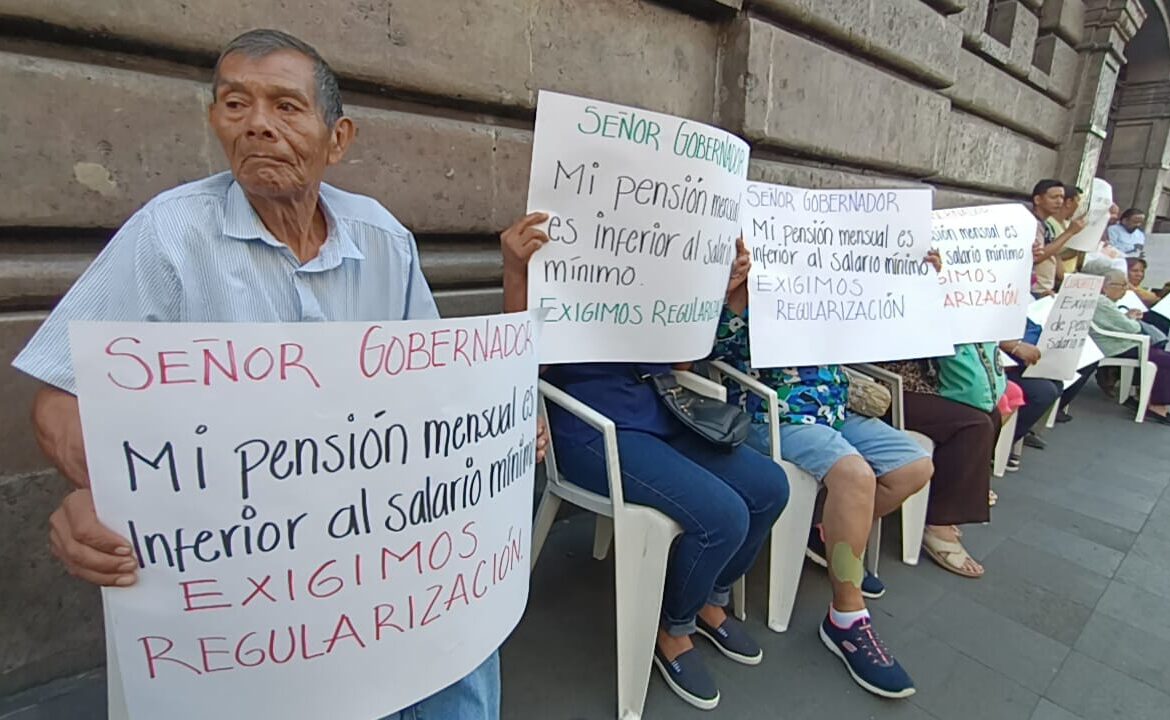 SEÑOR GOBERNADOR
Mi pensión mensual es
Inferior al salario mínimo
EXIGIMOS
REGULARIZACIÓN.
SEÑOR GOBERNADOR
Mi pensión mensual
es inferior al salario
mínimo.
EXIGIMOS
SEÑOR GOBERNADOR
Mi pensión mensual es
inferior al salario mínimo
EXIGIMOS
REGULARIZACIÓN
pensión mensual es
salario mínimo
Exigi
de pens
salario m